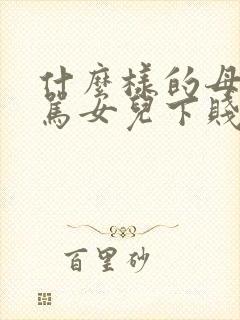 什麼樣的母
罵女兒下賤
百里砂